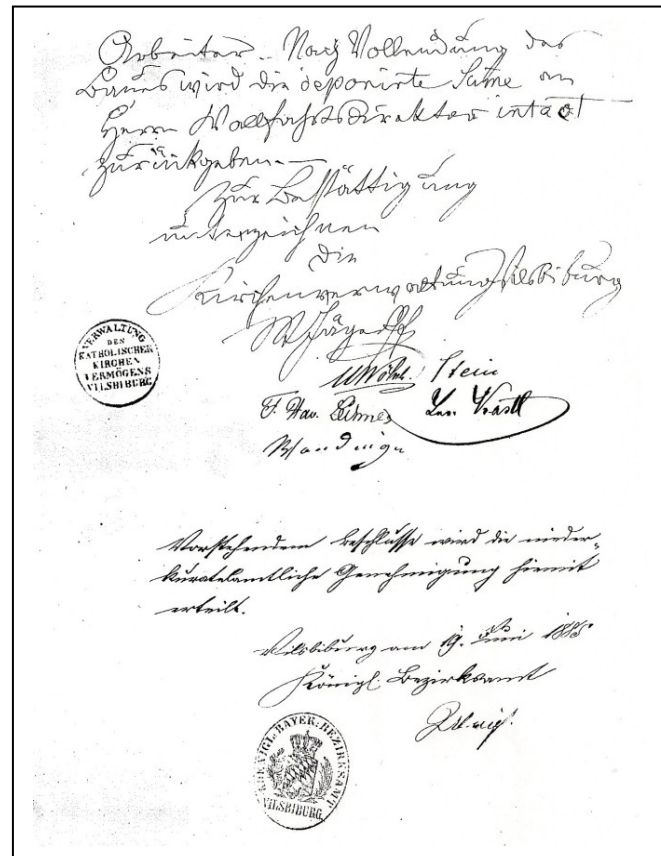 Arbeiter. Nach Vollendung des
Baues wird die deponirte Sume an
Herrn Wallfahrtsdirektor intact
zurückgeben. —
Zur Bestättigung
unterzeichnen
die
Kirchenverwaltung Vilsbiburg
Jäger Pf.
VERWALTUNG
DES
KATHOLISCHEN
KIRCHEN
VERMÖGENS
VILSBIBURG.
Stein
F. Xav.
Vorstehendem Beschlusse wird die nieder-
kuratelamtliche Genehmigung hiemit
erteilt.
Vilsbiburg am 19. Juni 1885
Königl. Bezirksamt
KOENIGL. BAYER. BEZIRKSAMT
VILSBIBURG.